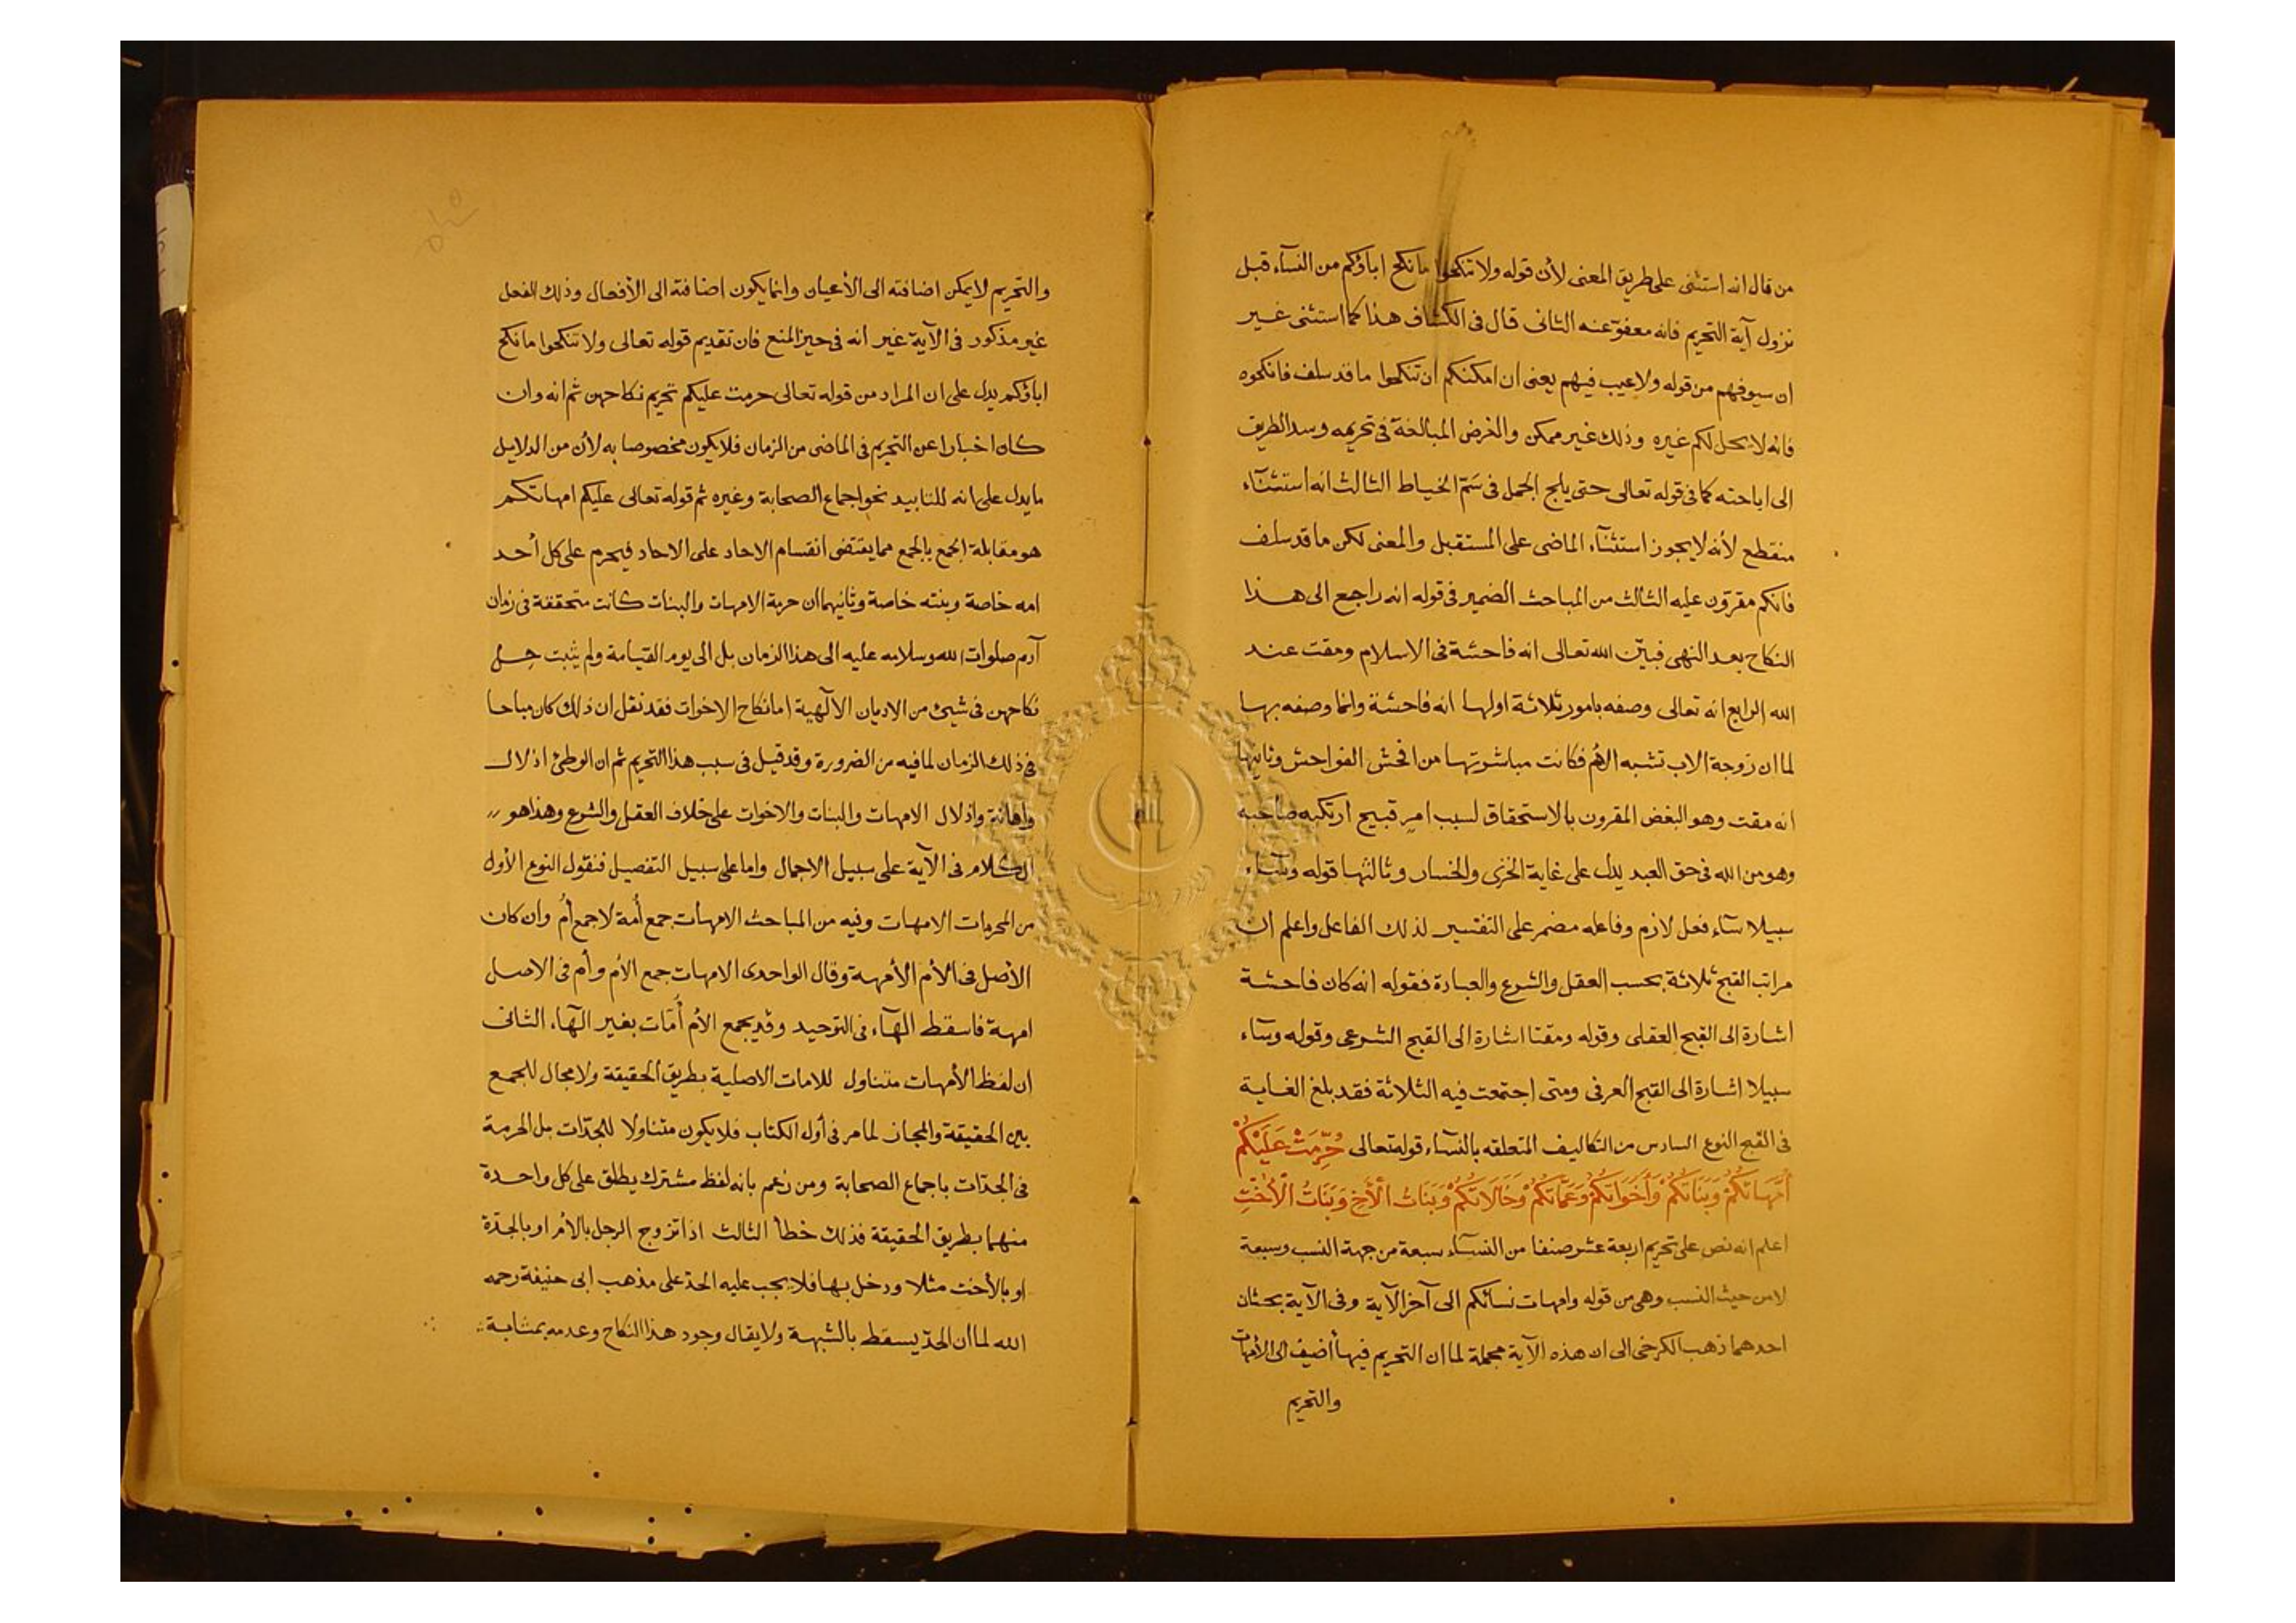 من قال انه استثنى على طريق المعنى لأن قوله ولا تنكحوا ما نكح اباؤكم من النسآء قبل
نزول آية التحريم فانه معفو عنه الثانى قال فى الكشاف هذا كما استثنى غير
ان سيوفهم من قوله ولا عيب فيهم يعنى ان امكنكم ان تنكحوا ما قد سلف فانكحوه
فانه لا يحل لكم غيره وذلك غير ممكن والغرض المبالغة فى تحريمه وسد الطريق
الى اباحته كما فى قوله تعالى حتى يلج الجمل فى سَمّ الخياط الثالث انه استثنآء
منقطع لأنه لا يجوز استثنآء الماضى على المستقبل والمعنى لكن ما قد سلف
فانكم مقرّون عليه الثالث من المباحث الضمير فى قوله انه راجع الى هذا
النكاح بعد النهى فبيّن الله تعالى انه فاحشة فى الاسلام ومقت عند
الله الرابع انه تعالى وصفه بامور ثلاثة اولها انه فاحشة وانما وصفه بها
لما ان زوجة الاب تشبه الأم فكانت مباشرتها من افحش الفواحش وثانيها
انه مقت وهو البغض المقرون بالاستحقاق لسبب امر قبيح ارتكبه صاحبه
وهو من الله فى حق العبد يدل على غاية الخزى والخسار وثالثها قوله وسآء
سبيلا سآء فعل لازم وفاعله مضمر على التفسير لذلك الفاعل واعلم ان
مراتب القبح ثلاثة بحسب العقل والشرع والعبادة فقوله انه كان فاحشة
اشارة الى القبح العقلى وقوله ومقتا اشارة الى القبح الشرعى وقوله وسآء
سبيلا اشارة الى القبح العرفى ومتى اجتمعت فيه الثلاثة فقد بلغ الغاية
فى القبح النوع السادس من التكاليف المتعلقه بالنسآء قوله تعالى حُرِّمَتْ عَلَيْكُمْ
أُمَّهَاتُكُمْ وَبَنَاتُكُمْ وَأَخَوَاتُكُمْ وَعَمَّاتُكُمْ وَخَالَاتُكُمْ وَبَنَاتُ الْأَخِ وَبَنَاتُ الْأُخْتِ
اعلم انه نص على تحريم اربعة عشر صنفا من النسآء سبعة من جهة النسب وسبعة
لا من حيث النسب وهى من قوله وامهات نسائكم الى آخر الآية وفى الآية بحثان
احدهما ذهب الكرخى الى ان هذه الآية مجملة لما ان التحريم فيها أضيف الى الأمهات
والتحريم
والتحريم لا يمكن اضافته الى الأعيان وانما يكون اضافته الى الأفعال وذلك الفعل
غير مذكور فى الآية غير انه فى حيز المنع فان تقديم قوله تعالى ولا تنكحوا ما نكح
اباؤكم يدل على ان المراد من قوله تعالى حرمت عليكم تحريم نكاحهن ثم انه وان
كان اخبارا عن التحريم فى الماضى من الزمان فلا يكون مخصوصا به لأن من الدلايل
ما يدل على انه للتابيد نحو اجماع الصحابة وغيره ثم قوله تعالى عليكم امهاتكم
هو مقابلة الجمع بالجمع مما يقتضى انقسام الاحاد على الاحاد فيحرم على كل أحد
امه خاصة وبنته خاصة وثانيهما ان حرمة الامهات والبنات كانت متحققة فى زمان
آدم صلوات الله وسلامه عليه الى هذا الزمان بل الى يوم القيامة ولم يثبت حل
نكاحهن فى شيئ من الاديان الآلهية اما نكاح الاخوات فقد نقل ان ذلك كان مباحا
فى ذلك الزمان لما فيه من الضرورة وقد قيل فى سبب هذا التحريم ثم ان الوطئ اذلال
واهانة واذلال الامهات والبنات والاخوات على خلاف العقل والشرع وهذا هو
الكلام فى الآية على سبيل الاجمال واما على سبيل التفصيل فنقول النوع الأول
من المحرمات الامهات وفيه من المباحث الامهات جمع أمة لا جمع أم وان كان
الأصل فى الأم الأمهة وقال الواحدى الامهات جمع الأم وأم فى الاصل
امهة فاسقط الهآء فى التوحيد وقد يجمع الأم أُمّات بغير الهآء الثانى
ان لفظ الأمهات متناول للامات الاصلية بطريق الحقيقة ولا مجال للجمع
بين الحقيقة والمجاز لما مر فى أول الكتاب فلا يكون متناولا للجدّات بل الحرمة
فى الجدّات باجماع الصحابة ومن زعم بانه لفظ مشترك يطلق على كل واحدة
منهما بطريق الحقيقة فذلك خطأ الثالث اذا تزوج الرجل بالأم او بالجدّة
او بالأخت مثلا ودخل بها فلا يجب عليه الحدّ على مذهب ابى حنيفة رحمه
الله لما ان الحدّ يسقط بالشبهة ولا يقال وجود هذا النكاح وعدمه بمثابة